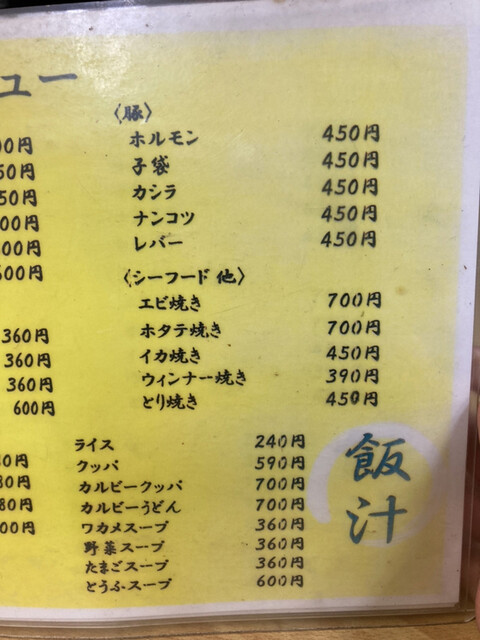 ュー
〈豚〉
ホルモン 450円
子袋 450円
カシラ 450円
ナンコツ 450円
レバー 450円
〈シーフード 他〉
エビ焼き 700円
ホタテ焼き 700円
イカ焼き 450円
ウィンナー焼き 390円
とり焼き 450円
360円
360円
360円
600円
飯汁
ライス 240円
クッパ 590円
カルビークッパ 700円
カルビーうどん 700円
ワカメスープ 360円
野菜スープ 360円
たまごスープ 360円
とうふスープ 600円